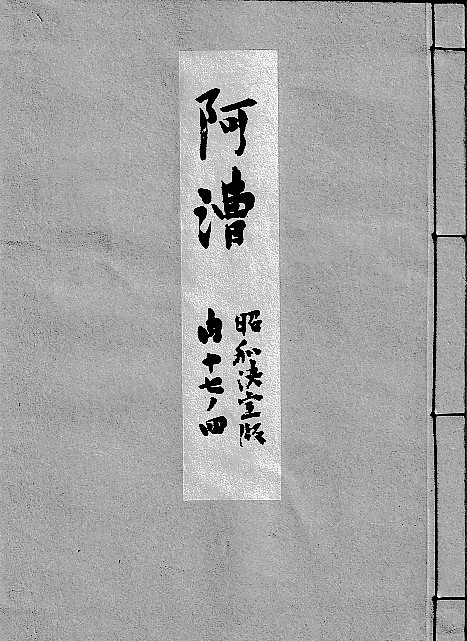 阿漕
昭和决定版
内十七ノ四